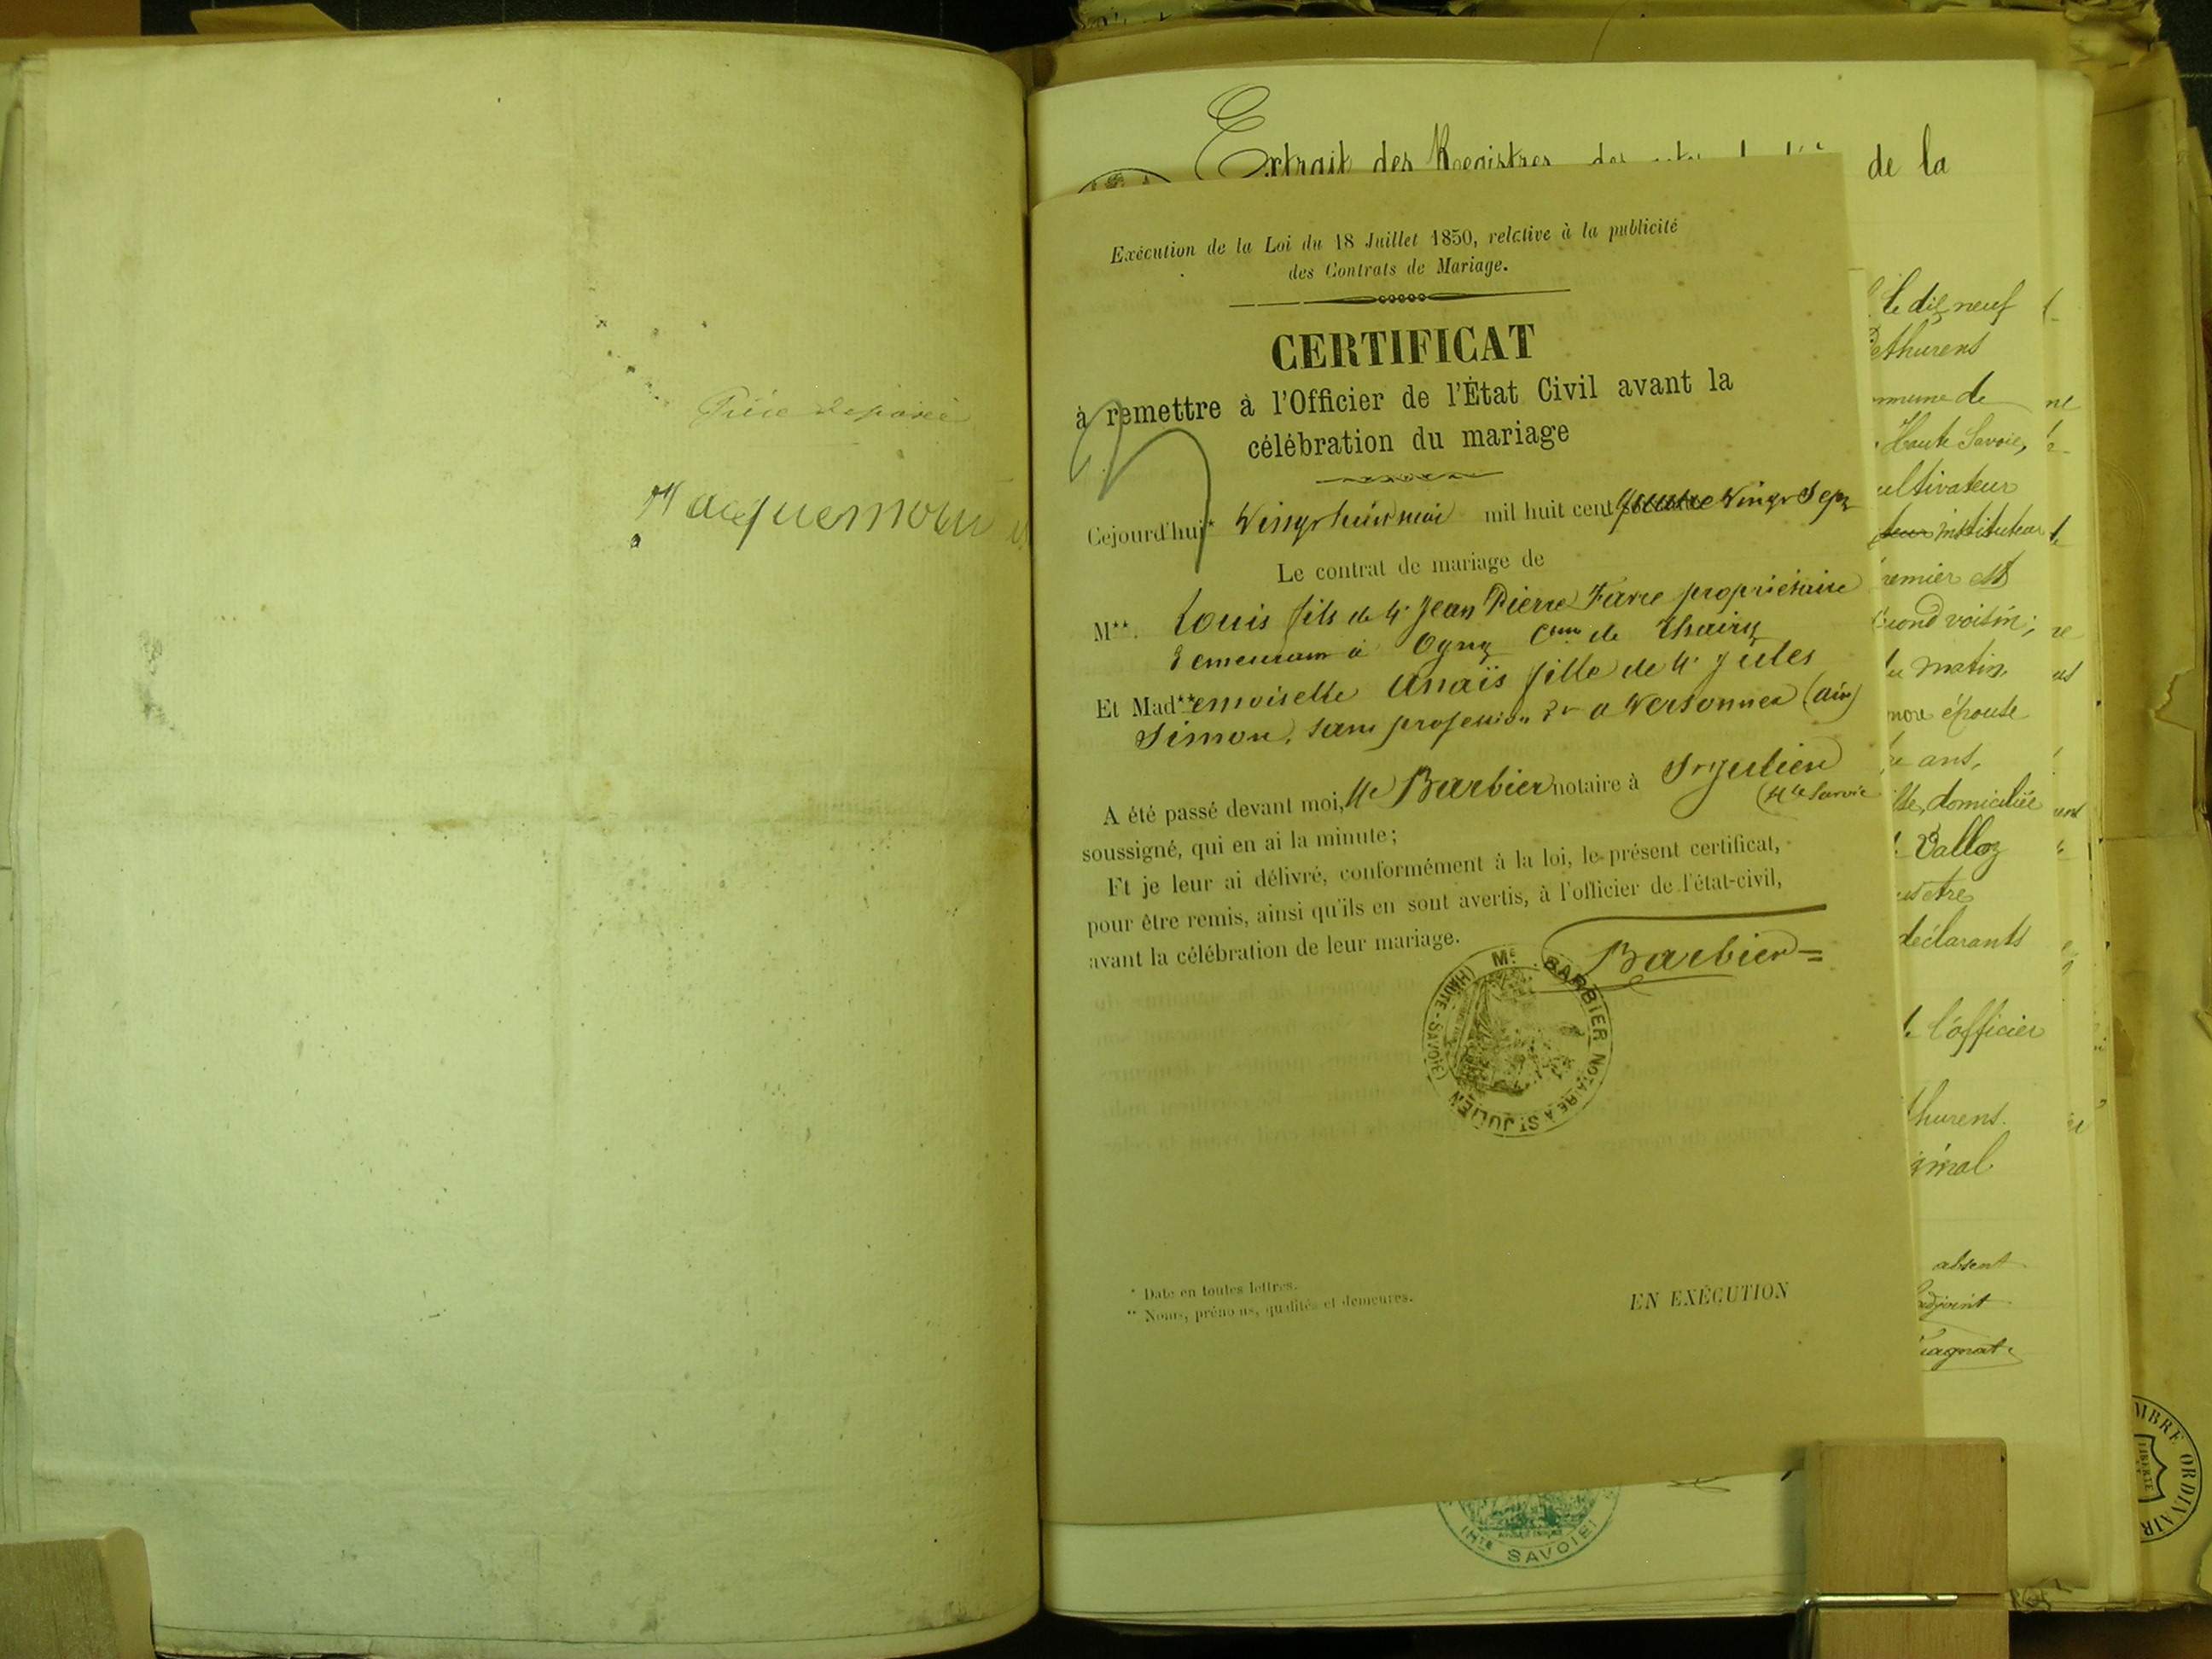 Pièce déposée
Extrait des Registres des de la
Exécution de la Loi du 18 Juillet 1850, relative à la publicité
des Contrats de Mariage.
CERTIFICAT
à remettre à l'Officier de l'État Civil avant la
célébration du mariage
Cejourd'hui* Vingt huit mai mil huit cent quatre Vingt Sept
Le contrat de mariage de
M**. Louis fils de Jean Pierre Favre propriétaire
demeurant à Ogny Cne de Thairy
Et Mad**emoiselle Anaïs fille de Jules
Simon, sans profession dt à Versonnex (Ain)
A été passé devant moi, Me Barbier notaire à St Julien
(Hte Savoie
soussigné, qui en ai la minute;
Et je leur ai délivré, conformément à la loi, le présent certificat,
pour être remis, ainsi qu'ils en sont avertis, à l'officier de l'état-civil,
avant la célébration de leur mariage.
Barbier
Me BARBIER NOTAIRE A ST JULIEN (HAUTE-SAVOIE)
* Date en toutes lettres.
** Noms, prénoms, qualités et demeures.
EN EXÉCUTION
le dix neuf
thurens
de
Haute Savoie,
cultivateur
instituteur
premier est
second voisin;
du matin
épouse
ans,
domiciliée
Valloz
déclarants
l'officier
thurens.
absent
adjoint
Hte SAVOIE
TIMBRE ORDINAIRE
LIBERTE